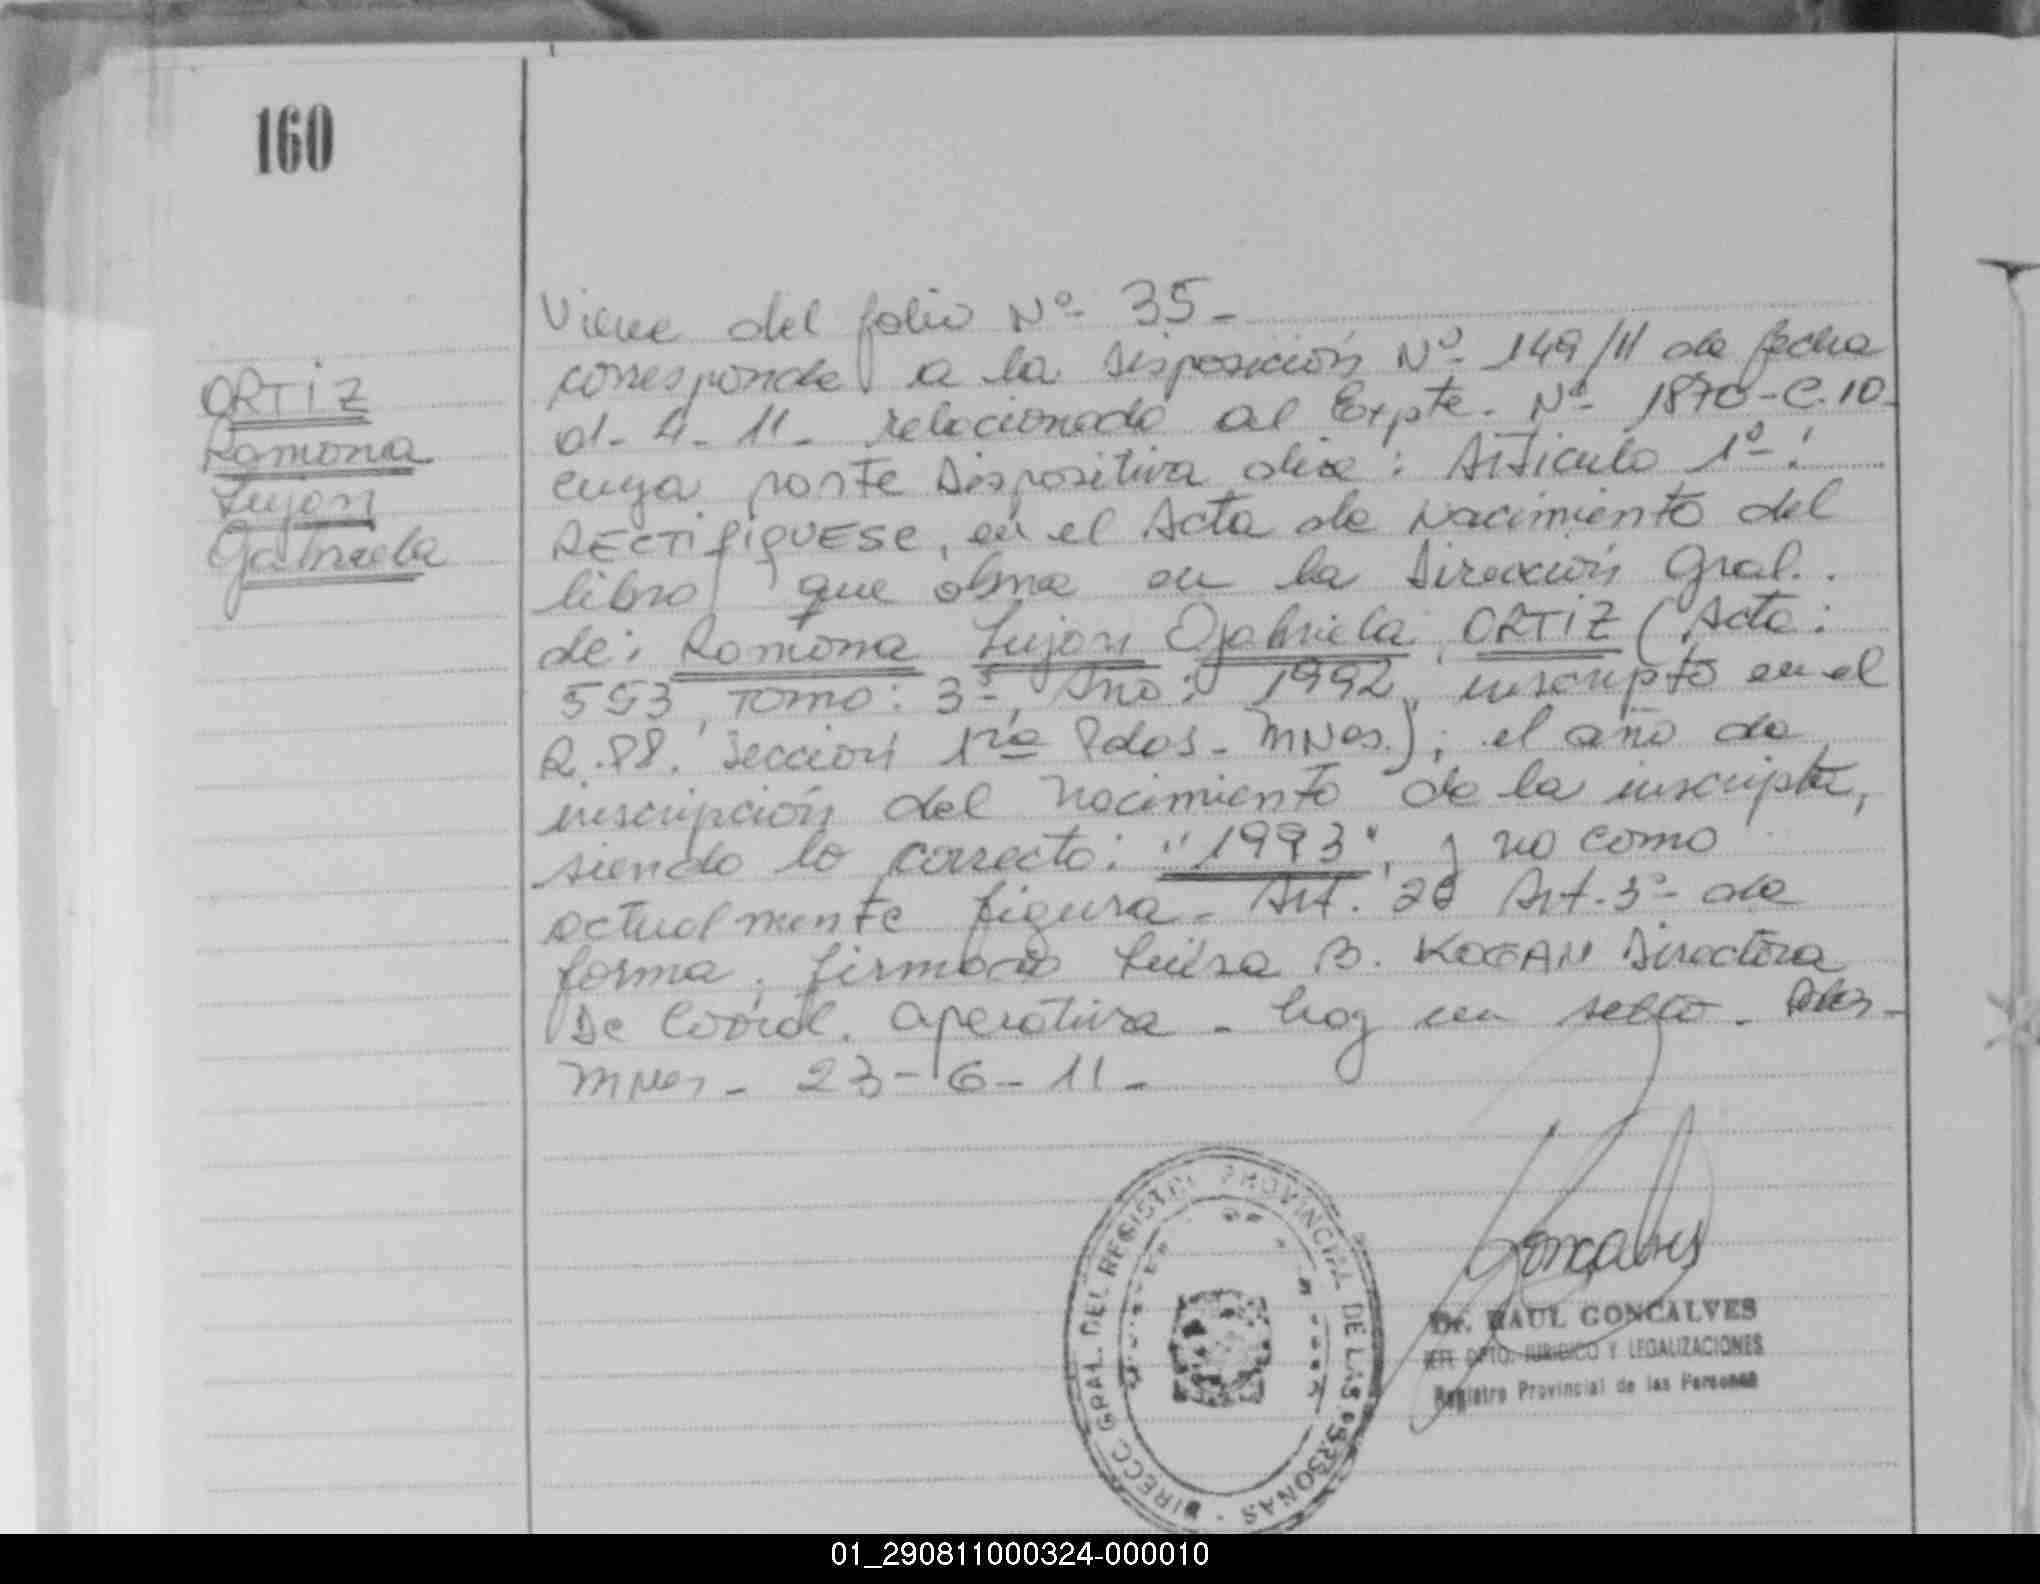 160
ORTIZ
Ramona
Lujan
Gabriela
Viene del folio Nº 35-
corresponde a la Disposición Nº 149/11 de fecha
01-4-11- relacionado al Expte. Nº 1870-C.10-
cuya parte Dispositiva dice: Articulo 1º:
RECTIFIQUESE, en el Acta de Nacimiento del
libro que obra en la Dirección Gral.
de: Ramona Lujan Gabriela ORTIZ (Acta:
593, Tomo: 3º, Año: 1992, inscripto en el
R.PP. Seccion 1ra Pdas-Mnes.); el año de
inscripción del Nacimiento de la inscripta,
siendo lo correcto: "1993", y no como
actualmente figura- Art. 2º Art. 3º de
forma, firmado Luisa B. KOGAN Directora
De Coord. Operativa- hay un sello- Pdas-
Mnes- 23-6-11-
DIRECC. GRAL. DEL REGISTRO PROVINCIAL DE LAS PERSONAS
Goncalves
Dr. RAUL GONCALVES
JEFE DPTO. JURIDICO Y LEGALIZACIONES
Registro Provincial de las Personas
01_290811000324-000010